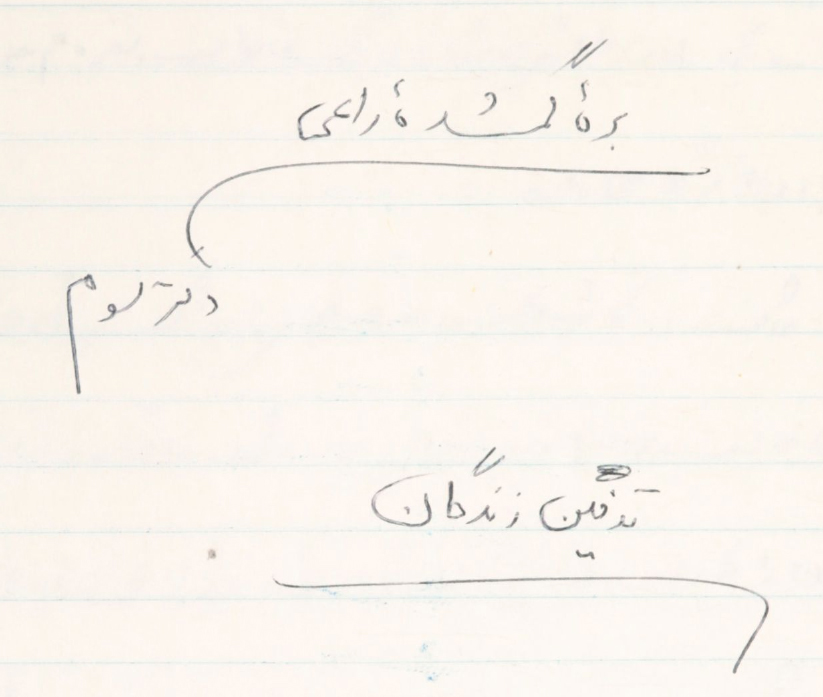 برهٔ گمشدهٔ راعی
دفتر سوم
تدفین زندگان